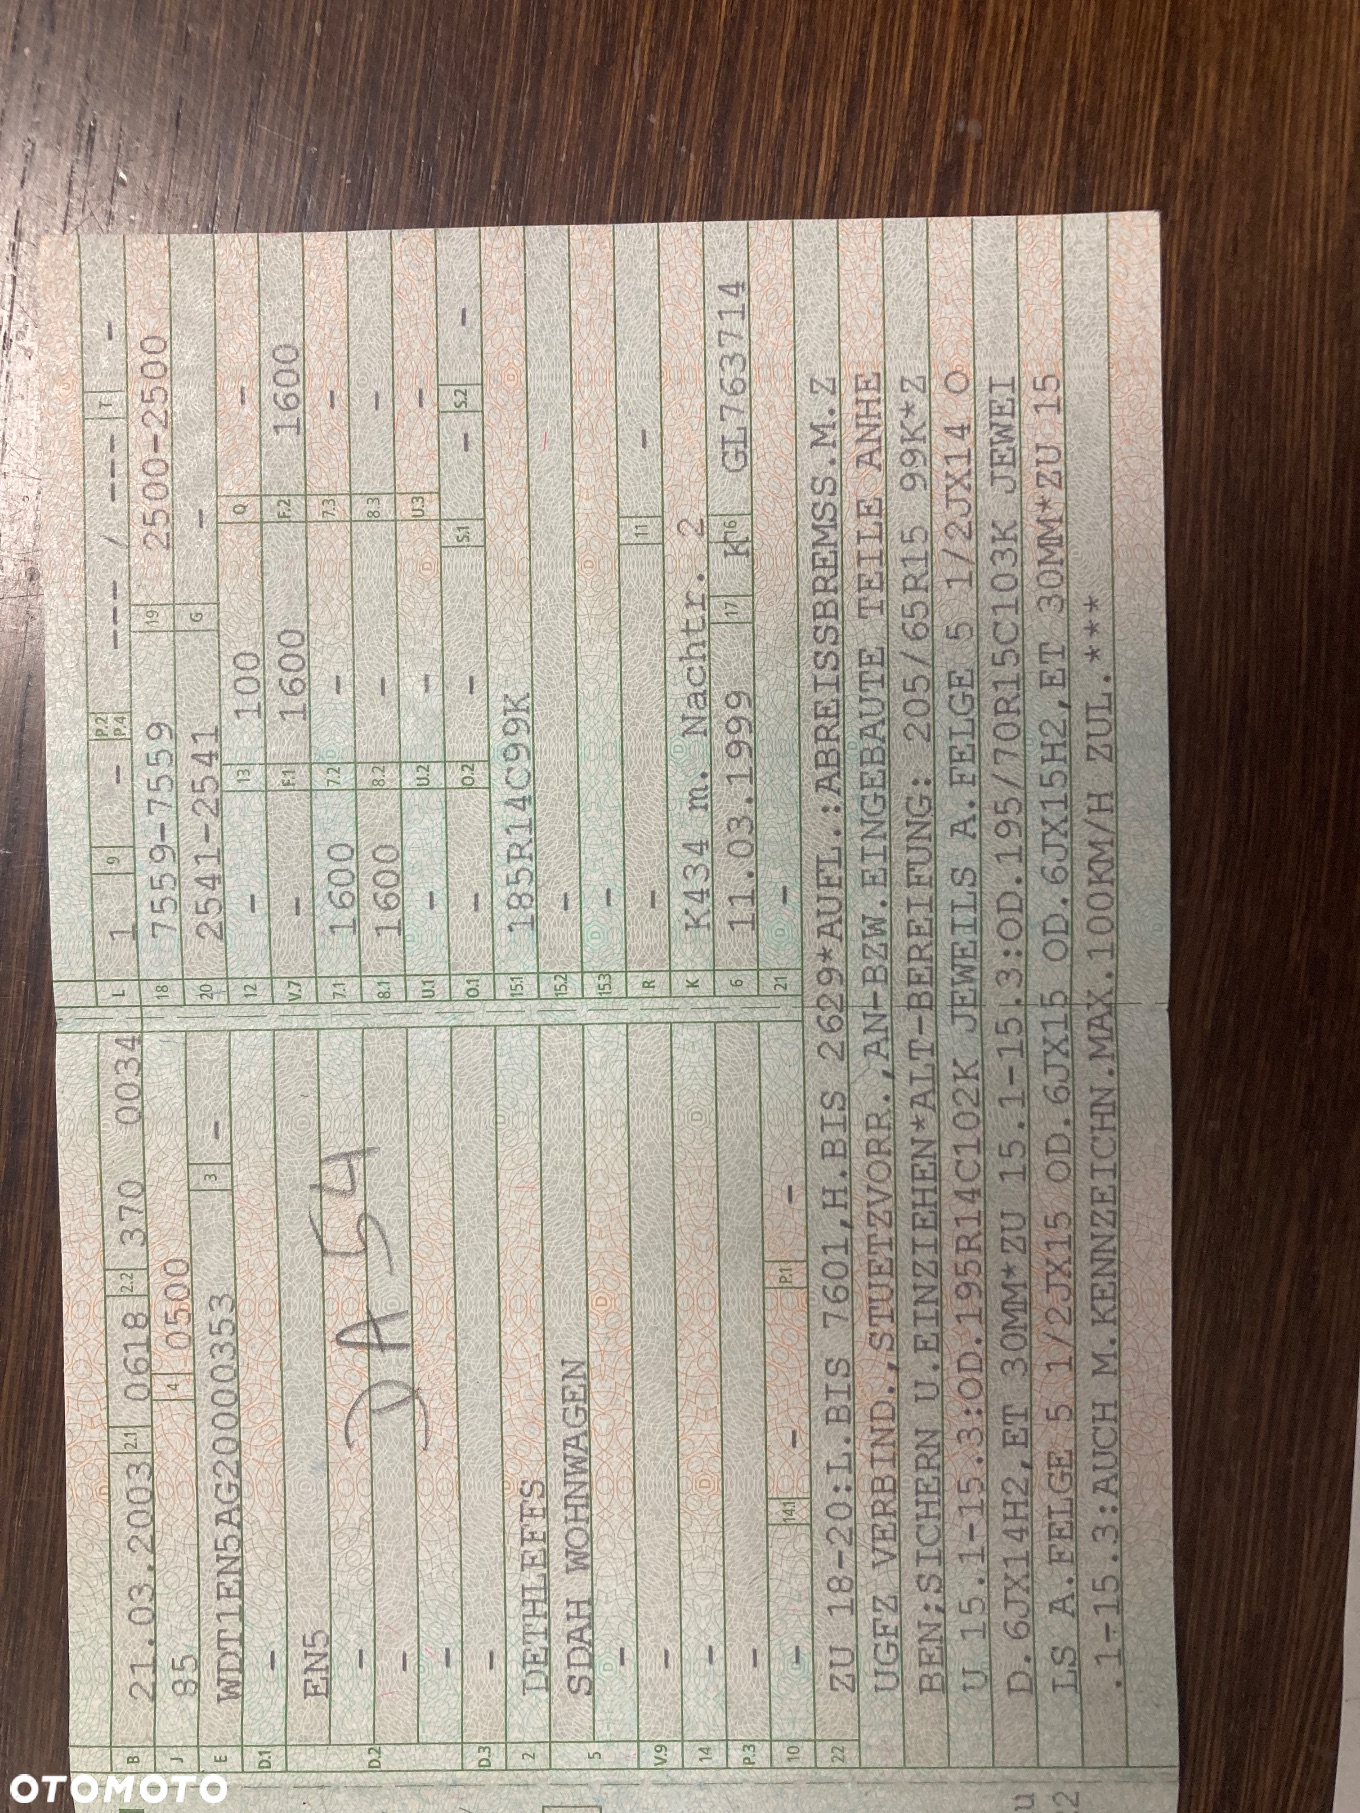 B 21.03.2003 2.1 0618 2.2 370 0034
J 85 4 0500
E WDT1EN5AG20000353 3 -
D.1 -
EN5
D.2 -
-
-
D.3 -
2 DETHLEFFS
5 SDAH WOHNWAGEN
-
V.9 -
14 -
P.3 -
10 - 14.1 - P.1 -
DA54
L 1 9 - P.2 P.4 --- / --- T -
18 7559-7559 19 2500-2500
20 2541-2541 G -
12 - 13 100 Q -
V.7 - F.1 1600 F.2 1600
7.1 1600 7.2 - 7.3 -
8.1 1600 8.2 - 8.3 -
U.1 - U.2 - U.3 -
O.1 - O.2 - S.1 - S.2 -
15.1 185R14C99K
15.2 -
15.3 -
R - 11 -
K K434 m. Nachtr. 2
6 11.03.1999 17 K 16 GL763714
21 -
22 ZU 18-20:L.BIS 7601,H.BIS 2629*AUFL.:ABREISSBREMSS.M.Z
UGFZ VERBIND.,STUETZVORR.,AN-BZW.EINGEBAUTE TEILE ANHE
BEN;SICHERN U.EINZIEHEN*ALT-BEREIFUNG: 205/65R15 99K*Z
U 15.1-15.3:OD.195R14C102K JEWEILS A.FELGE 5 1/2JX14 O
D. 6JX14H2,ET 30MM*ZU 15.1-15.3:OD.195/70R15C103K JEWEI
LS A.FELGE 5 1/2JX15 OD.6JX15 OD.6JX15H2,ET 30MM*ZU 15
.1-15.3:AUCH M.KENNZEICHN.MAX.100KM/H ZUL.***
OTOMOTO